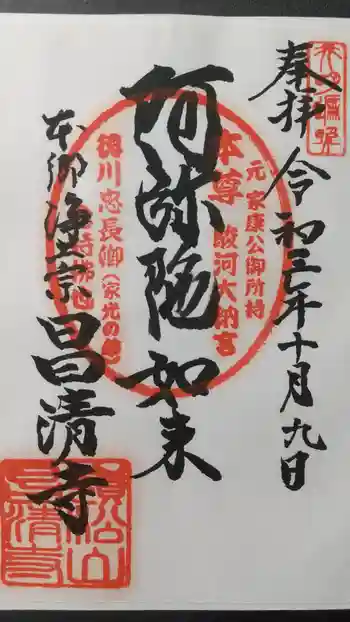 奉拝 令和三年十月九日
阿弥陀如来
本郷 浄土宗 昌清寺
元 家康公御所持
本尊 駿河大納言
徳川忠長卿(家光の弟)